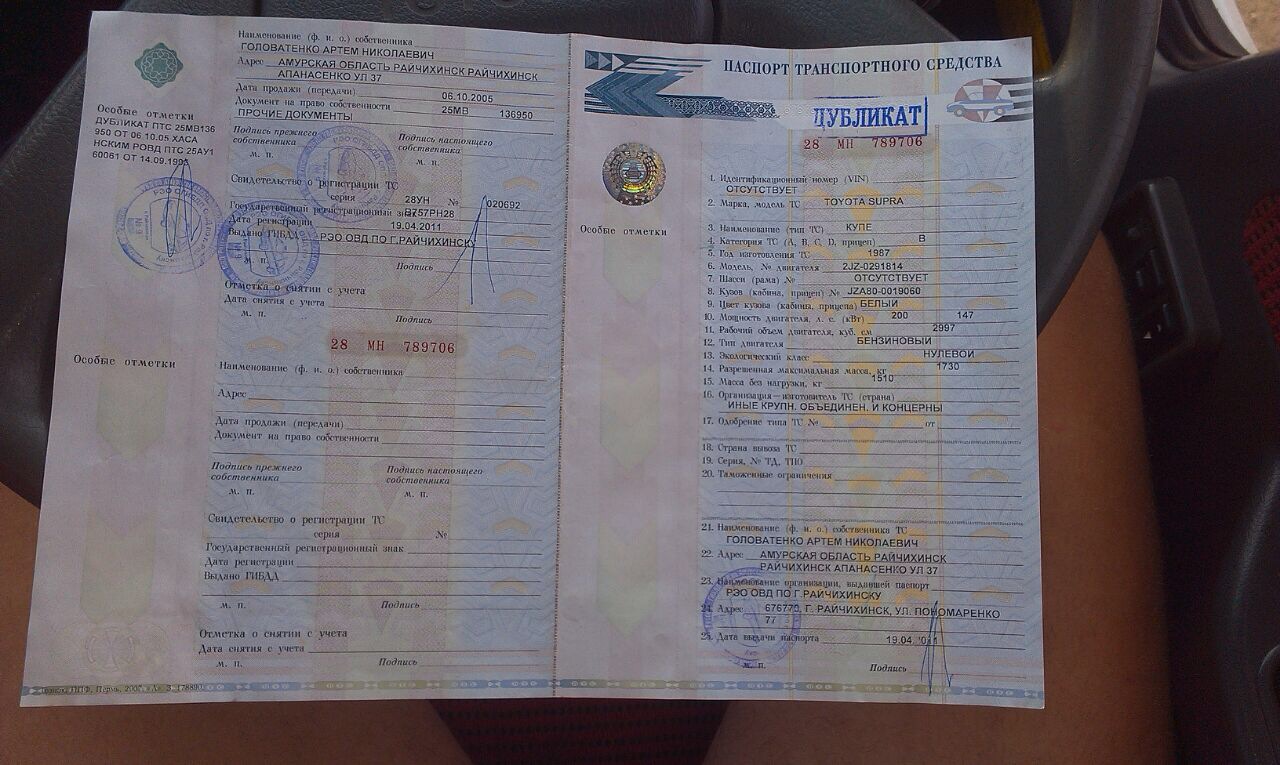 Наименование (ф. и. о.) собственника
ГОЛОВАТЕНКО АРТЕМ НИКОЛАЕВИЧ
Адрес АМУРСКАЯ ОБЛАСТЬ РАЙЧИХИНСК РАЙЧИХИНСК
АПАНАСЕНКО УЛ 37
Дата продажи (передачи) 06.10.2005
Документ на право собственности 25МВ 136950
ПРОЧИЕ ДОКУМЕНТЫ
Подпись прежнего собственника
Подпись настоящего собственника
м. п. м. п.
Свидетельство о регистрации ТС
серия 28УН № 020692
Государственный регистрационный 757РН28
Дата регистрации 19.04.2011
Выдано ГИБДД РЭО ОВД ПО Г.РАЙЧИХИНСКУ
м. п. Подпись
Отметка о снятии с учета
Дата снятия с учета
м. п. Подпись
28 МН 789706
Особые отметки
ДУБЛИКАТ ПТС 25МВ136
950 ОТ 06.10.05 ХАСА
НСКИМ РОВД ПТС 25АУ1
60061 ОТ 14.09.1995
Особые отметки
Наименование (ф. и. о.) собственника
Адрес
Дата продажи (передачи)
Документ на право собственности
Подпись прежнего собственника
Подпись настоящего собственника
м. п. м. п.
Свидетельство о регистрации ТС
серия №
Государственный регистрационный знак
Дата регистрации
Выдано ГИБДД
м. п. Подпись
Отметка о снятии с учета
Дата снятия с учета
м. п. Подпись
ПАСПОРТ ТРАНСПОРТНОГО СРЕДСТВА
ДУБЛИКАТ
28 МН 789706
Особые отметки
1. Идентификационный номер (VIN)
ОТСУТСТВУЕТ
2. Марка, модель ТС TOYOTA SUPRA
3. Наименование (тип ТС) КУПЕ
4. Категория ТС (А, В, С, D, прицеп) В
5. Год изготовления ТС 1987
6. Модель, № двигателя 2JZ-0291814
7. Шасси (рама) № ОТСУТСТВУЕТ
8. Кузов (кабина, прицеп) № JZA80-0019060
9. Цвет кузова (кабины, прицепа) БЕЛЫЙ
10. Мощность двигателя, л. с. (кВт) 200 147
11. Рабочий объем двигателя, куб. см 2997
12. Тип двигателя БЕНЗИНОВЫЙ
13. Экологический класс НУЛЕВОЙ
14. Разрешенная максимальная масса, кг 1730
15. Масса без нагрузки, кг 1510
16. Организация—изготовитель ТС (страна)
ИНЫЕ КРУПН. ОБЪЕДИНЕН. И КОНЦЕРНЫ
17. Одобрение типа ТС № от
18. Страна вывоза ТС
19. Серия, № ТД, ТПО
20. Таможенные ограничения
21. Наименование (ф. и. о.) собственника ТС
ГОЛОВАТЕНКО АРТЕМ НИКОЛАЕВИЧ
22. Адрес АМУРСКАЯ ОБЛАСТЬ РАЙЧИХИНСК
РАЙЧИХИНСК АПАНАСЕНКО УЛ 37
23. Наименование организации, выдавшей паспорт
РЭО ОВД ПО Г.РАЙЧИХИНСКУ
24. Адрес 676770, Г. РАЙЧИХИНСК, УЛ. ПОНОМАРЕНКО
77
25. Дата выдачи паспорта 19.04.2011
м. п. Подпись